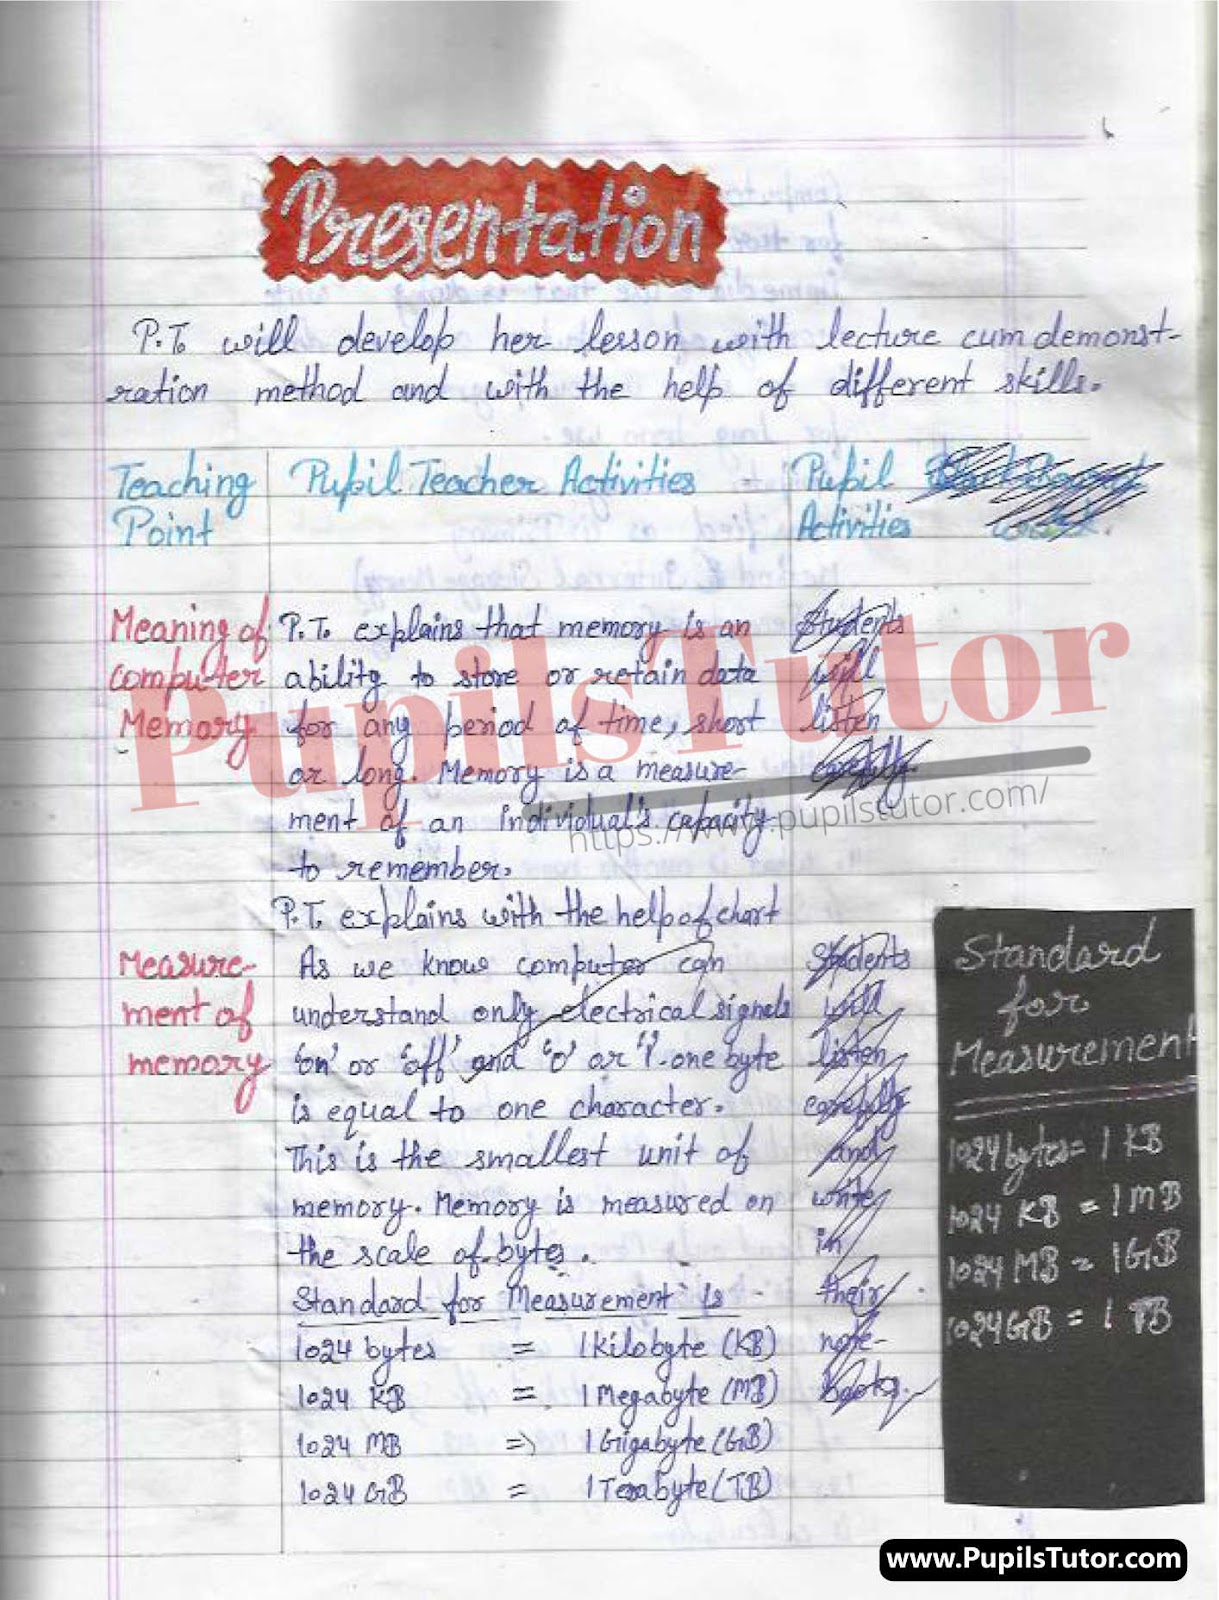 Presentation
P.T. will develop her lesson with lecture cum demonst-
ration method and with the help of different skills.
Teaching Point
Pupil Teacher Activities
Pupil Activities
Meaning of
computer
Memory
P.T. explains that memory is an
ability to store or retain data
for any period of time, short
or long. Memory is a measure-
ment of an individual's capacity
to remember.
Students
will
listen
carefully
P.T. explains with the help of chart
Measure-
ment of
memory
As we know computer can
understand only electrical signals
'on' or 'off' and '0' or '1'. one byte
is equal to one character.
This is the smallest unit of
memory. Memory is measured on
the scale of bytes.
Standard for Measurement is
1024 bytes = 1 Kilobyte (KB)
1024 KB = 1 Megabyte (MB)
1024 MB => 1 Gigabyte (GB)
1024 GB = 1 Terabyte (TB)
Students
will
listen
carefully
and
write
in
their
note-
books.
Standard
for
Measurement
1024 bytes = 1 KB
1024 KB = 1 MB
1024 MB = 1 GB
1024 GB = 1 TB
PupilsTutor
https://www.pupilstutor.com/
www.PupilsTutor.com